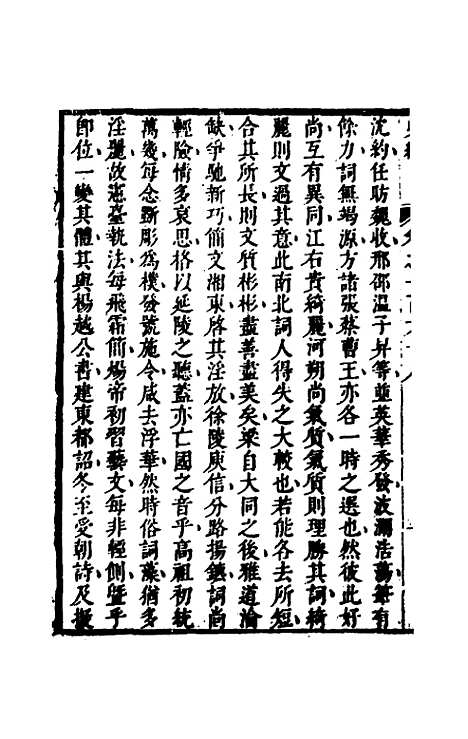 沈約任昉魏收邢邵温子昇等並英華秀發波瀾浩蕩筆有
餘力詞無竭源方諸張蔡曹王亦各一時之選也然彼此好
尚互有異同江右貴綺麗河朔尚氣質氣質則理勝其詞綺
麗則文過其意此南北詞人得失之大較也若能各去所短
合其所長則文質彬彬盡善盡美矣梁自大同之後雅道淪
缺爭馳新巧簡文湘東啓其淫放徐陵庾信分路揚鑣詞尚
輕險情多哀思格以延陵之聽蓋亦亡國之音乎高祖初統
萬幾每念斵彫為樸發號施令咸去浮華然時俗詞藻猶多
淫麗故憲臺執法每飛霜簡煬帝初習藝文每非輕側曁乎
卽位一變其體其與楊越公書建東都詔冬至受朝詩及擬